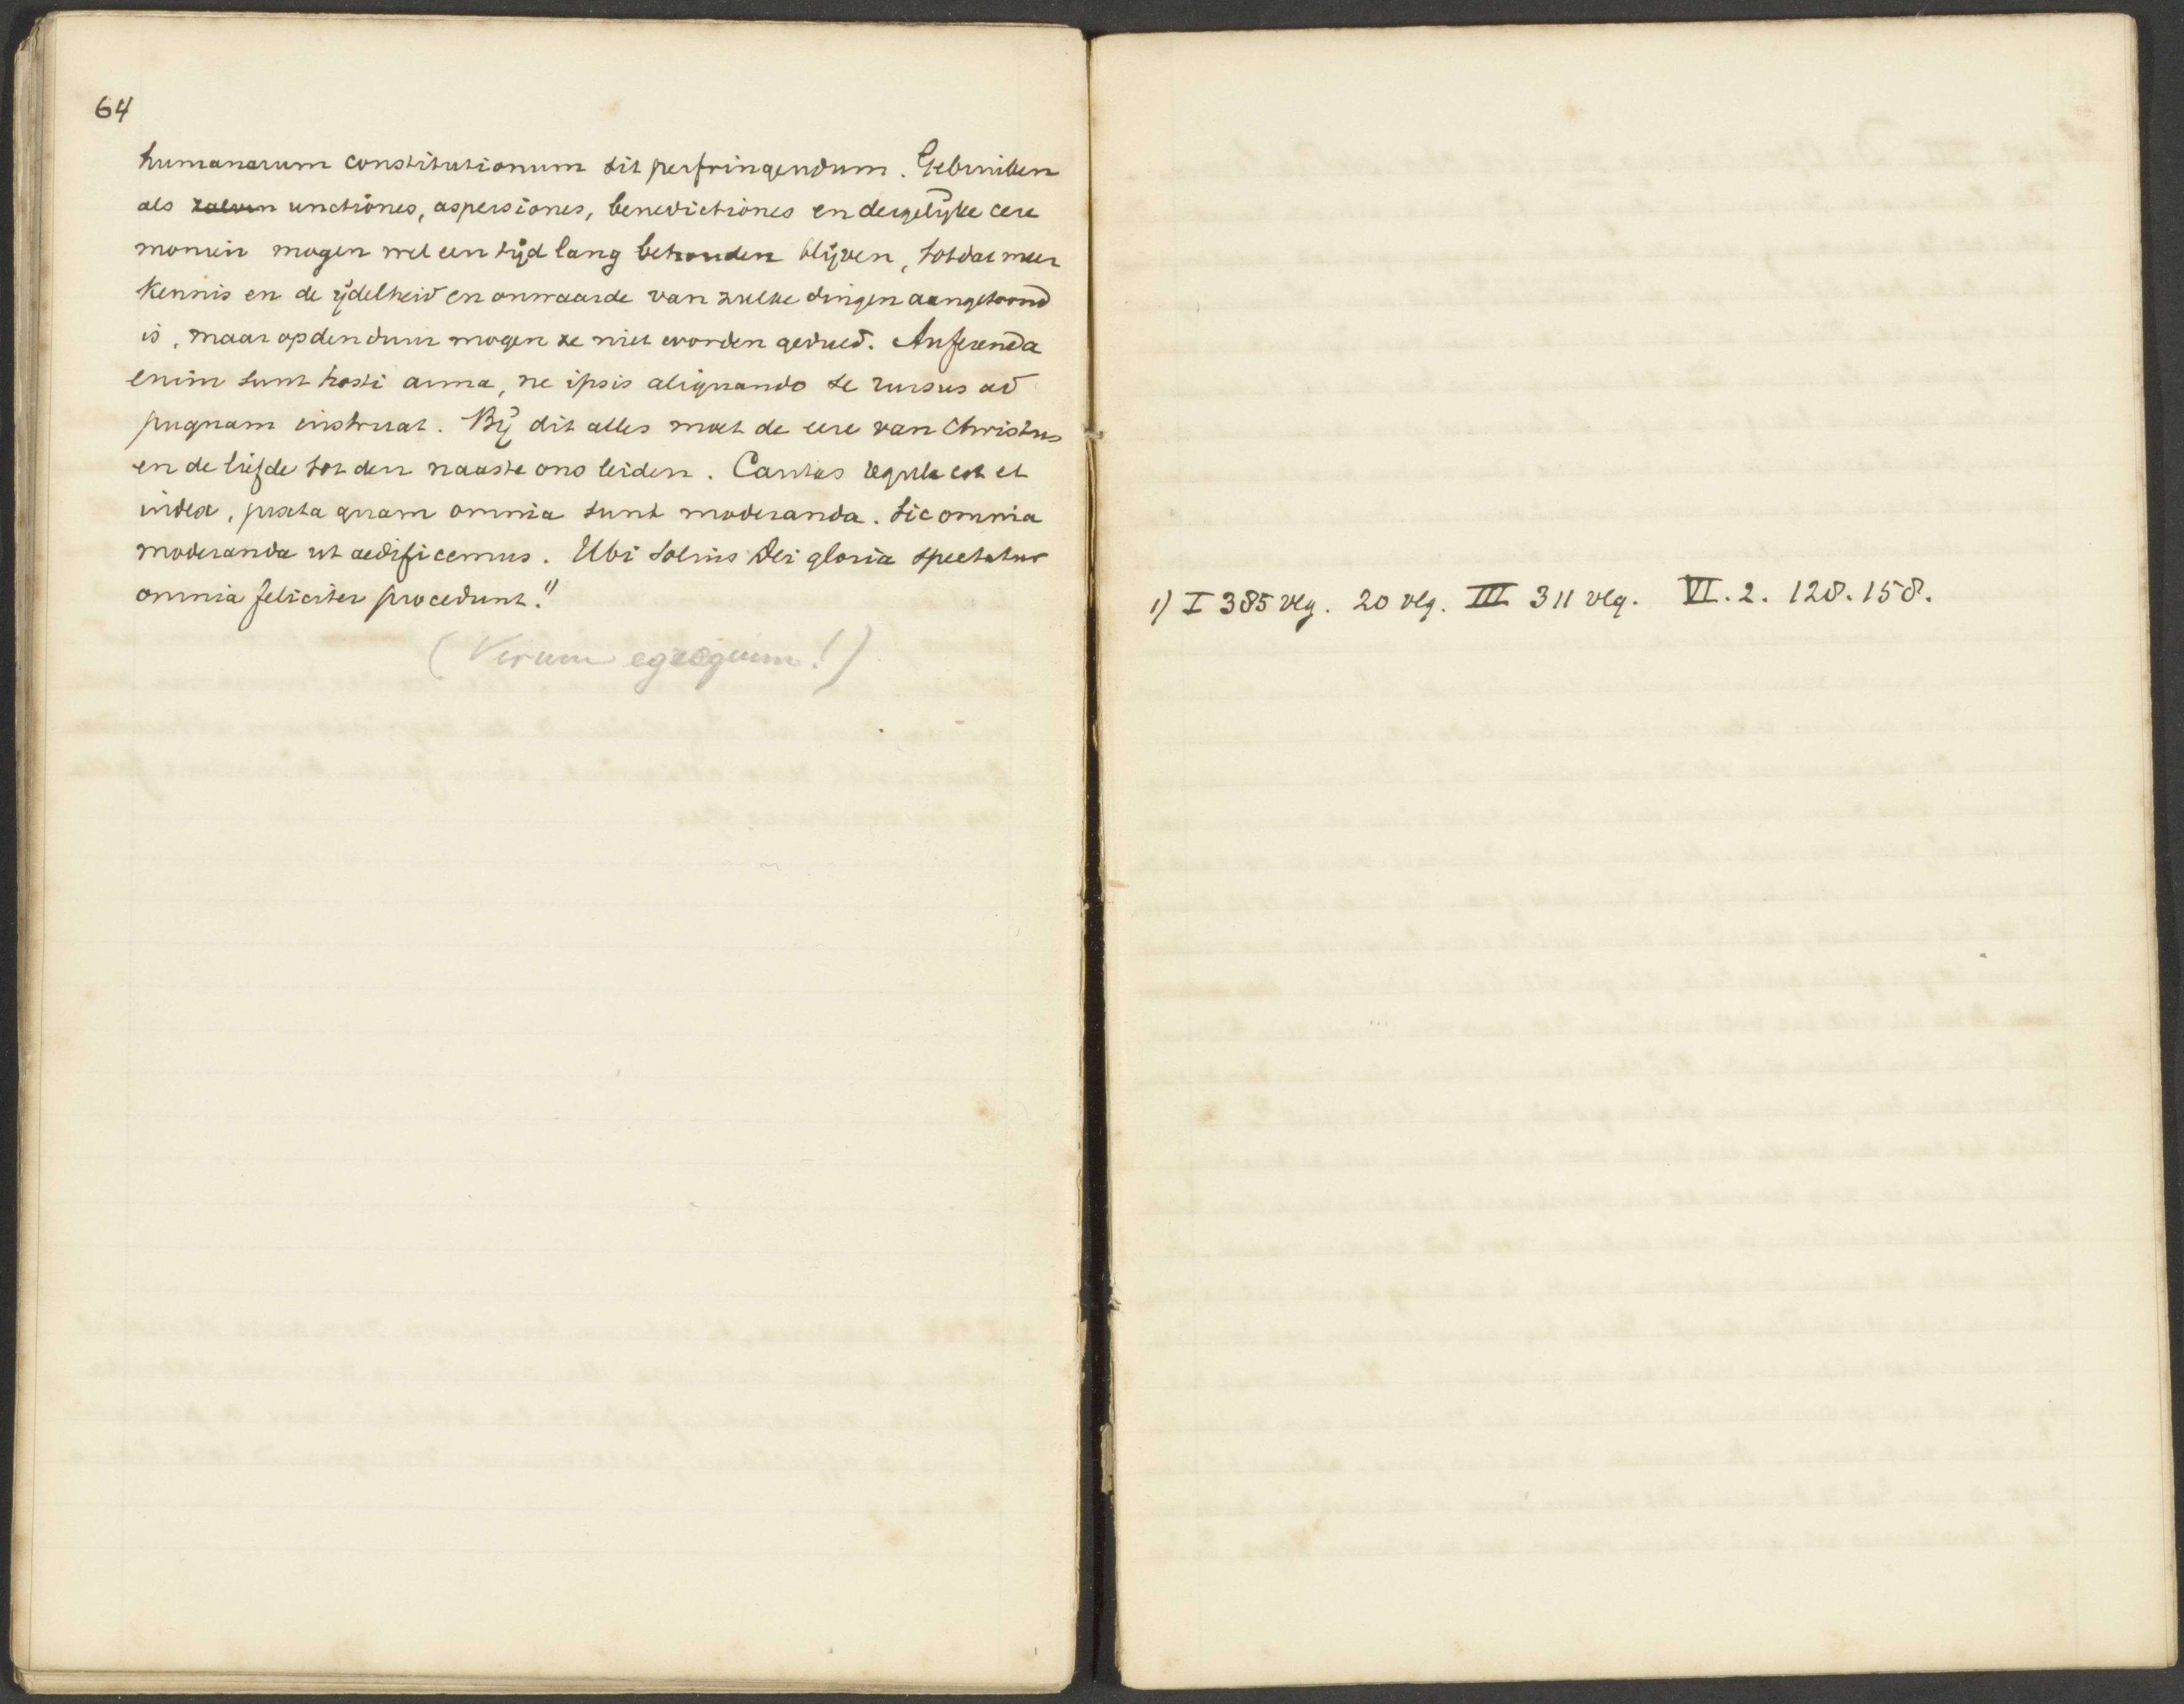 64
humanarum constitutionum sit perfringendum. Gebruiken
als zalven unctiones, aspersiones, benedictiones en dergelijke cere
moniën mogen wel een tijd lang behouden blijven, totdat meer
kennis en de ijdelheid en onwaarde van zulke dingen aangetoond
is, maar op den duur mogen ze niet worden geduld. Auferenda
enim sunt hosti arma, ne ipsis aliquando se rursus ad
pugnam instruat. Bij dit alles moet de eere van Christus
en de liefde tot den naaste ons leiden. Caritas regula est et
index, juxta quam omnia sunt moderanda. Sic omnia
moderanda ut aedificemus. Ubi solius Dei gloria spectatur
omnia feliciter procedunt.1)
(Virum egregium!)
1) I 385 vlg. 20 vlg. III 311 vlg. VI. 2. 128. 158.